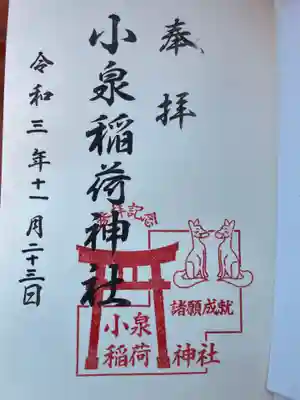 奉拝
小泉稲荷神社
令和三年十一月二十三日
参拝記念
諸願成就
小泉
稲荷神社